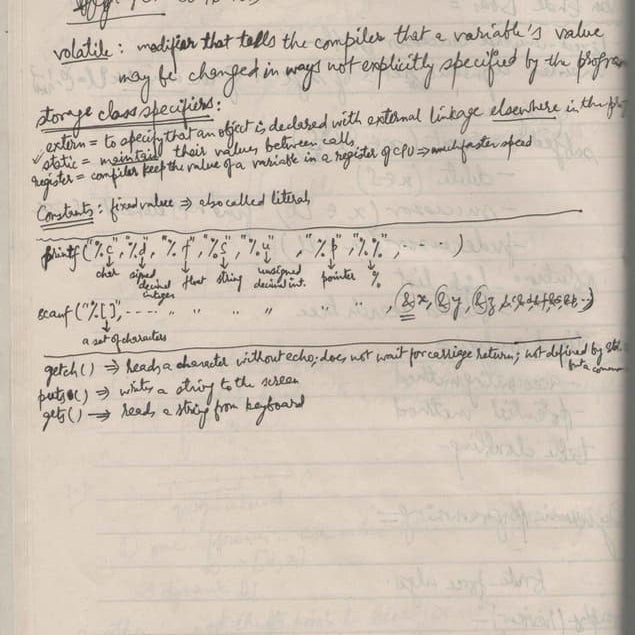 volatile : modifier that tells the compiler that a variable's value
may be changed in ways not explicitly specified by the program
storage class specifiers :
extern = to specify that an object is declared with external linkage elsewhere in the
static = maintain their values between calls
register = compiler keep the value of a variable in a register of CPU ⇒ much faster speed
Constants : fixed value ⇒ also called literals
printf ("%c", "%d", "%f", "%s", "%u" , "%p", "%%", ..... )
char signed decimal integers float string unsigned decimal int. pointer %
scanf ("%[]", .... " " " " " " , &x, &y, &z,
a set of characters
getch() ⇒ Reads a character without echo; does not wait for carriage return; not defined by
but a common
puts() ⇒ writes a string to the screen
gets() ⇒ reads a string from keyboard